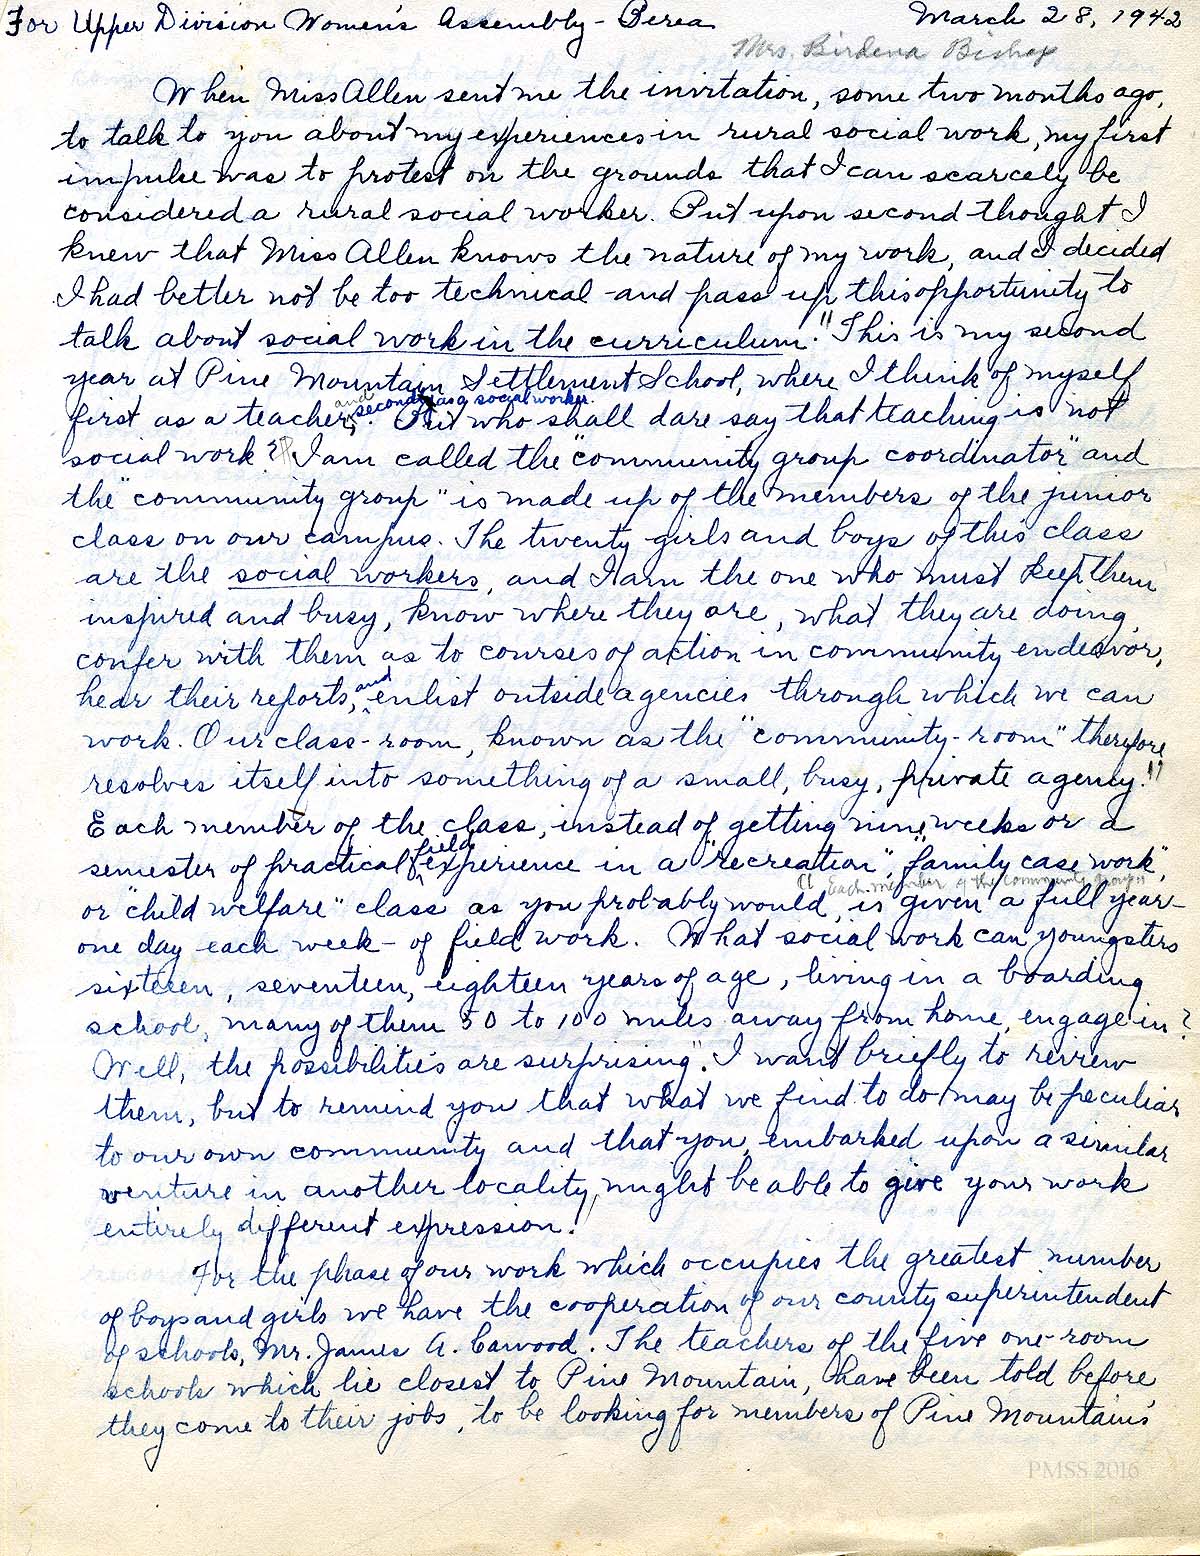 For Upper Division Women's Assembly - Berea March 28, 1942
Mrs. Birdena Bishop
When Miss Allen sent me the invitation, some two months ago,
to talk to you about my experiences in rural social work, my first
impulse was to protest on the grounds that I can scarcely be
considered a rural social worker. But upon second thought I
knew that Miss Allen knows the nature of my work, and I decided
I had better not be too technical and pass up this opportunity to
talk about social work in the curriculum." This is my second
year at Pine Mountain Settlement School, where I think of myself
and second as a social worker.
first as a teacher,. But who shall dare say that teaching is not
social work? I am called the "community group coordinator" and
the "community group" is made up of the members of the junior
class on our campus. The twenty girls and boys of this class
are the social workers, and I am the one who must keep them
inspired and busy, know where they are, what they are doing,
confer with them as to courses of action in community endeavor,
hear their reports, and enlist outside agencies through which we can
work. Our class-room, known as the "community-room" therefore
resolves itself into something of a small, busy, private agency."
Each member of the class, instead of getting nine weeks or a
semester of practical field experience in a "recreation", "family case work",
(( Each member of the community group))
or "child welfare" class as you probably would, is given a full year-
one day each week - of field work. What social work can youngsters
sixteen, seventeen, eighteen years of age, living in a boarding
school, many of them 50 to 100 miles away from home, engage in?
Well, the possibilities are surprising". I want briefly to review
them, but to remind you that what we find to do may be peculiar
to our own community and that you, embarked upon a similar
venture in another locality, might be able to give your work
entirely different expression.
For the phase of our work which occupies the greatest number
of boys and girls we have the cooperation of our county superintendent
of schools, Mr. James A. Cawood. The teachers of the five one-room
schools which lie closest to Pine Mountain, have been told before
they come to their jobs, to be looking for members of Pine Mountain's
PMSS 2016